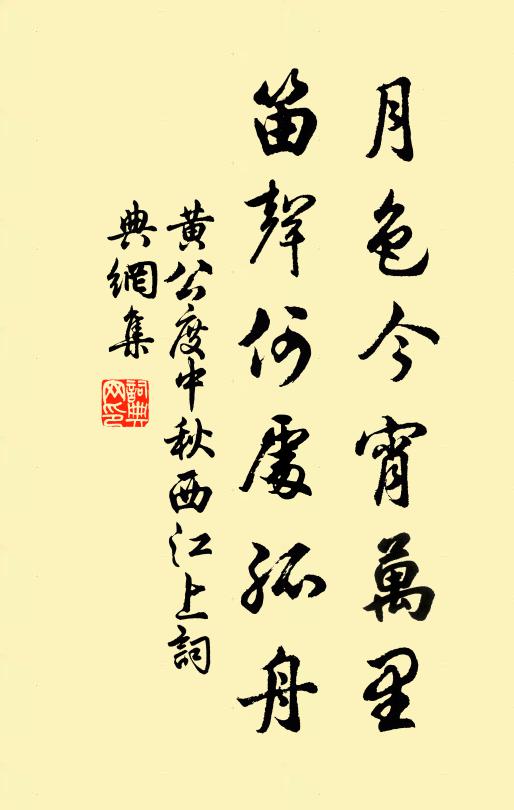 月色今宵萬里
笛聲何處孤舟
黄公度中秋西江上詞
典網集
詞典
网印